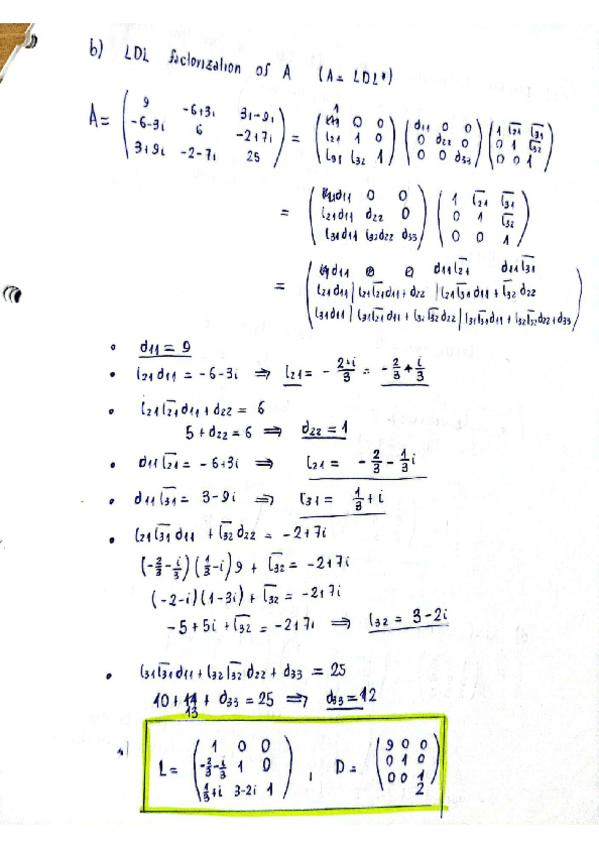 b) LDL factorization of A (A = LDL*)
A = ( 9 -6+3i 3-9i ; -6-3i 6 -2+7i ; 3+9i -2-7i 25 ) = ( 1 0 0 ; l21 1 0 ; l31 l32 1 ) ( d11 0 0 ; 0 d22 0 ; 0 0 d33 ) ( 1 l̅21 l̅31 ; 0 1 l̅32 ; 0 0 1 )
= ( d11 0 0 ; l21d11 d22 0 ; l31d11 l32d22 d33 ) ( 1 l̅21 l̅31 ; 0 1 l̅32 ; 0 0 1 )
= ( d11 d11l̅21 d11l̅31 ; l21d11 | l21l̅21d11 + d22 | l21l̅31d11 + l̅32d22 ; l31d11 | l31l̅21d11 + l32d22 | l31l̅31d11 + l32l̅32d22 + d33 )
• d11 = 9
• l21d11 = -6-3i ⇒ l21 = - 2+i/3 = - 2/3 + i/3
• l21l̅21d11 + d22 = 6
5 + d22 = 6 ⇒ d22 = 1
• d11l̅21 = -6+3i ⇒ l21 = - 2/3 - 1/3 i
• d11l̅31 = 3-9i ⇒ l31 = 1/3 + i
• l21l̅31d11 + l̅32d22 = -2+7i
(-2/3 - i/3)(1/3 - i) 9 + l̅32 = -2+7i
(-2-i)(1-3i) + l̅32 = -2+7i
-5+5i + l̅32 = -2+7i ⇒ l32 = 3-2i
• l31l̅31d11 + l32l̅32d22 + d33 = 25
10 + 13 + d33 = 25 ⇒ d33 = 12
L = ( 1 0 0 ; -2/3 - i/3 1 0 ; 1/3 + i 3-2i 1 ) , D = ( 9 0 0 ; 0 1 0 ; 0 0 1 2 )